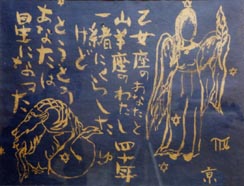 乙女座のあなたと
山羊座のわたし 四十年
一緒にくらした
けど
とうとう
あなたは
星になった
京
♍